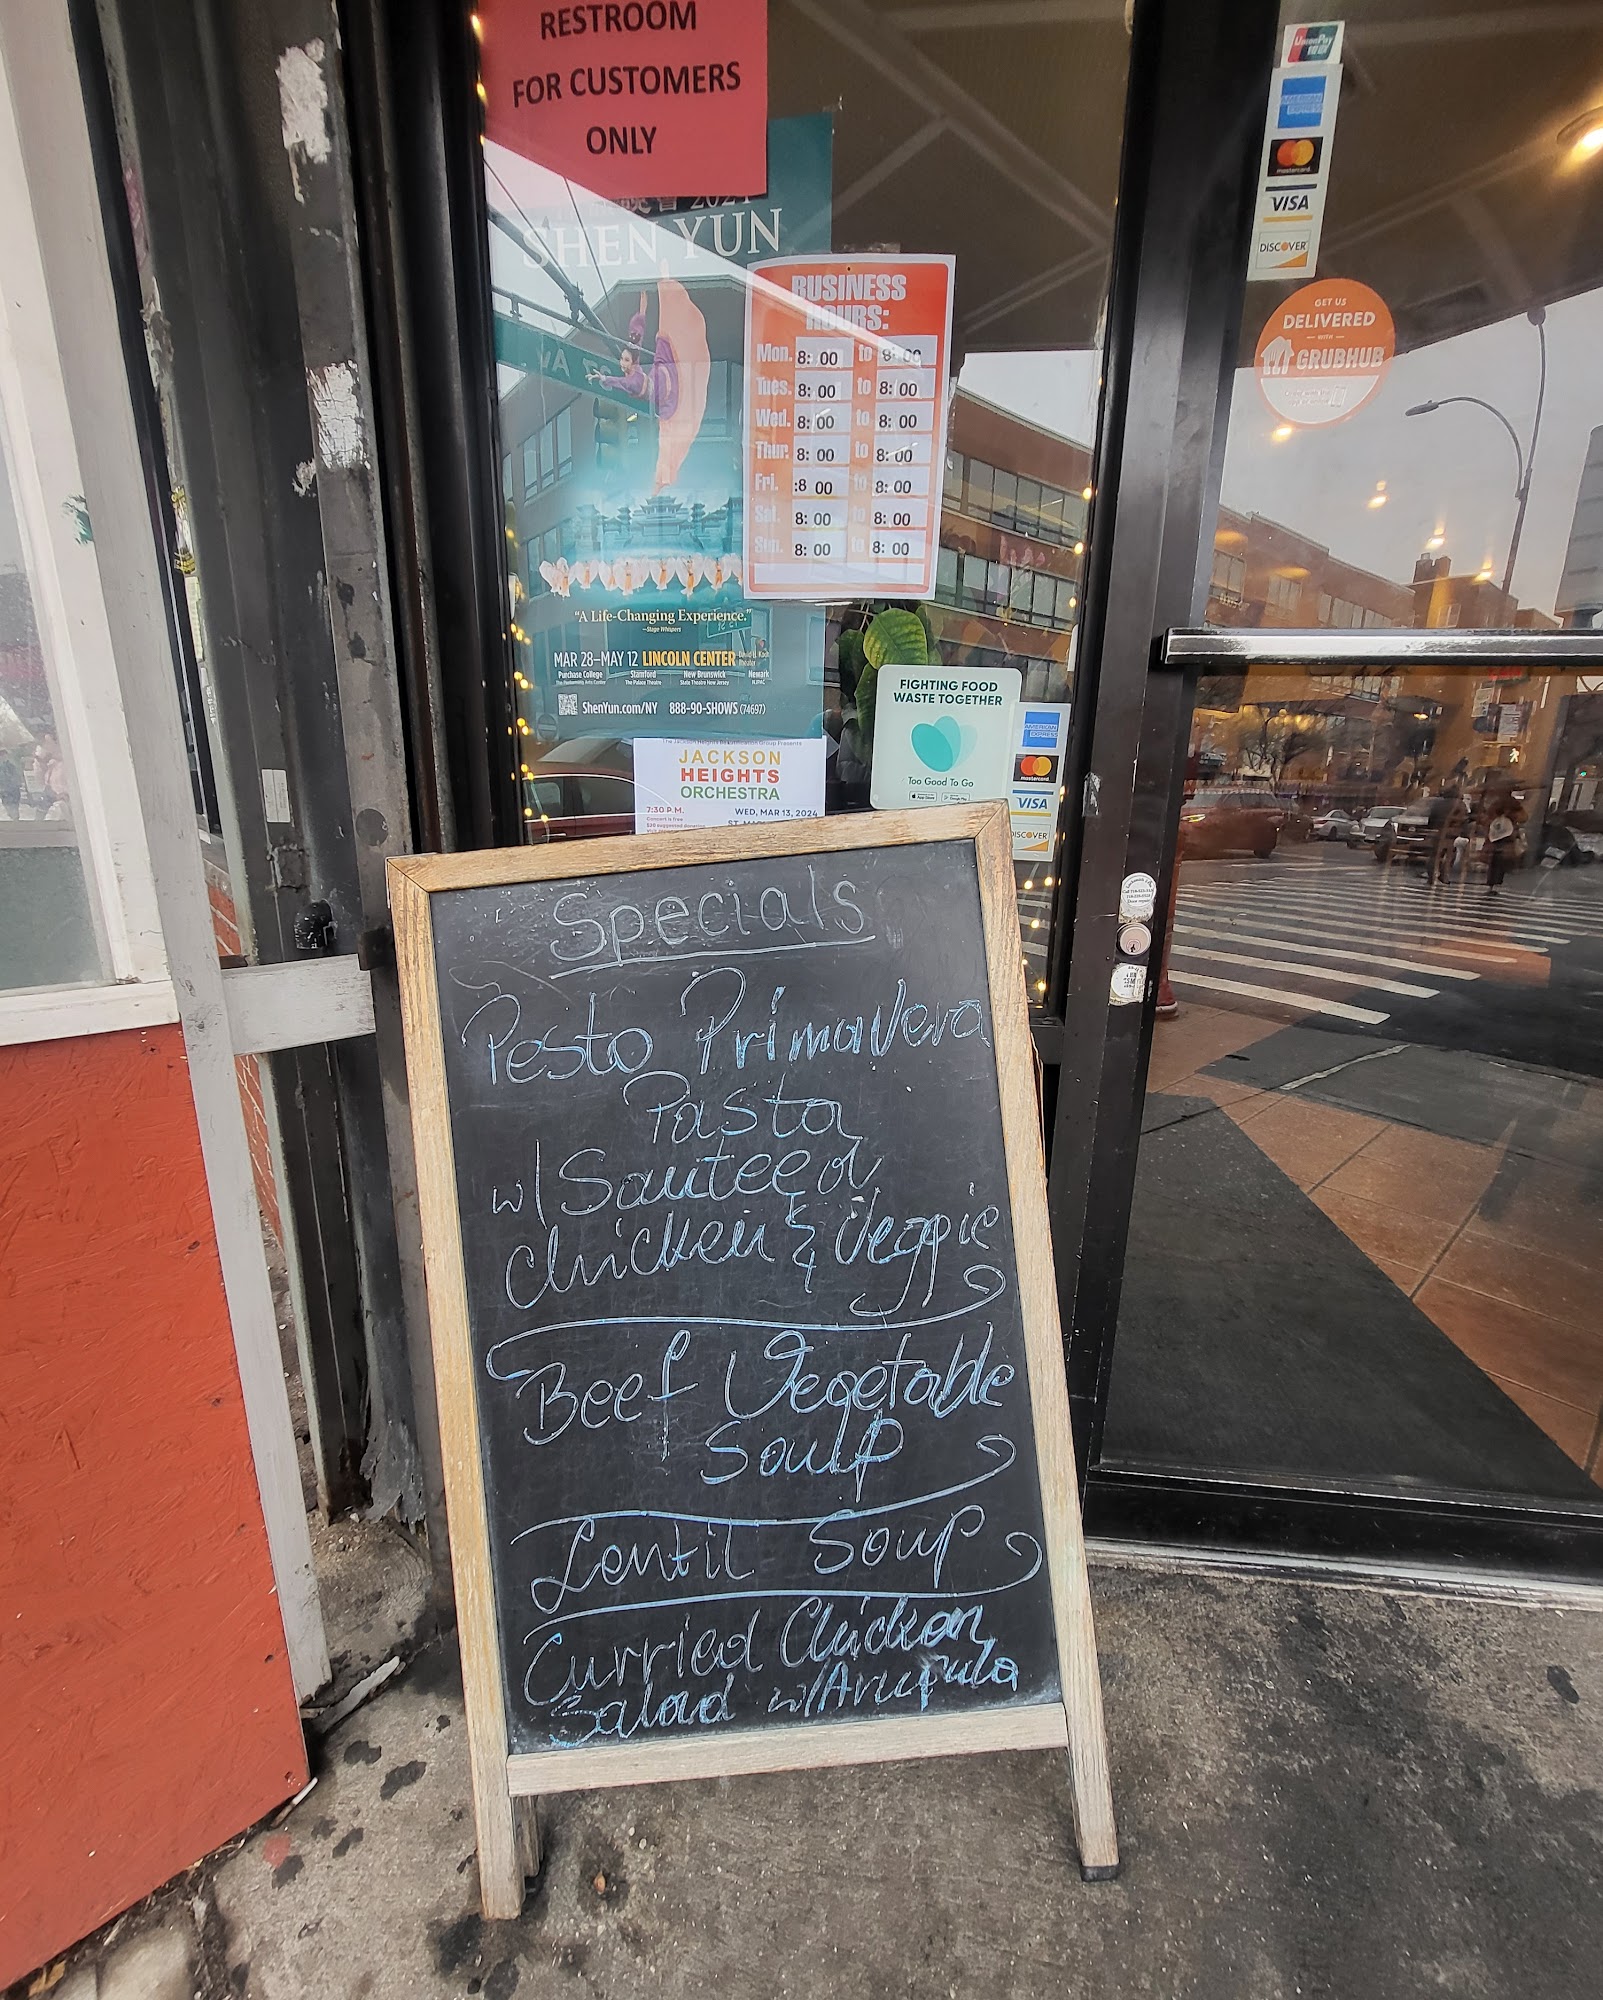 RESTROOM
FOR CUSTOMERS
ONLY
SHEN YUN
"A Life-Changing Experience."
—Stage Whispers
MAR 28–MAY 12 LINCOLN CENTER David H. Koch Theater
Purchase College Stamford New Brunswick Newark
The Performing Arts Center The Palace Theatre State Theatre New Jersey NJPAC
ShenYun.com/NY 888-90-SHOWS (74697)
BUSINESS
HOURS:
Mon. 8: 00 to 8: 00
Tues. 8: 00 to 8: 00
Wed. 8: 00 to 8: 00
Thur. 8: 00 to 8: 00
Fri. :8 00 to 8: 00
Sat. 8: 00 to 8: 00
Sun. 8: 00 to 8: 00
The Jackson Heights Beautification Group Presents
JACKSON
HEIGHTS
ORCHESTRA
7:30 P.M. WED, MAR 13, 2024
Concert is free
FIGHTING FOOD
WASTE TOGETHER
Too Good To Go
AMERICAN EXPRESS
mastercard
VISA
DISCOVER
UnionPay
银联
AMERICAN EXPRESS
mastercard
VISA
DISCOVER
GET US
DELIVERED
WITH
GRUBHUB
Specials
Pesto Primavera
Pasta
w/ Sauteed
Chicken & Veggie
Beef Vegetable
Soup
Lentil Soup
Curried Chicken
Salad w/ Arugula